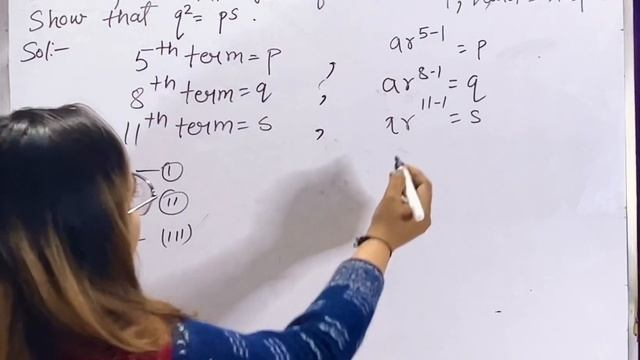 Show that q² = ps.
Sol:-
5th term = p , ar^5-1 = p
8th term = q , ar^8-1 = q
11th term = s , ar^11-1 = s
— (I)
(II)
- (III)